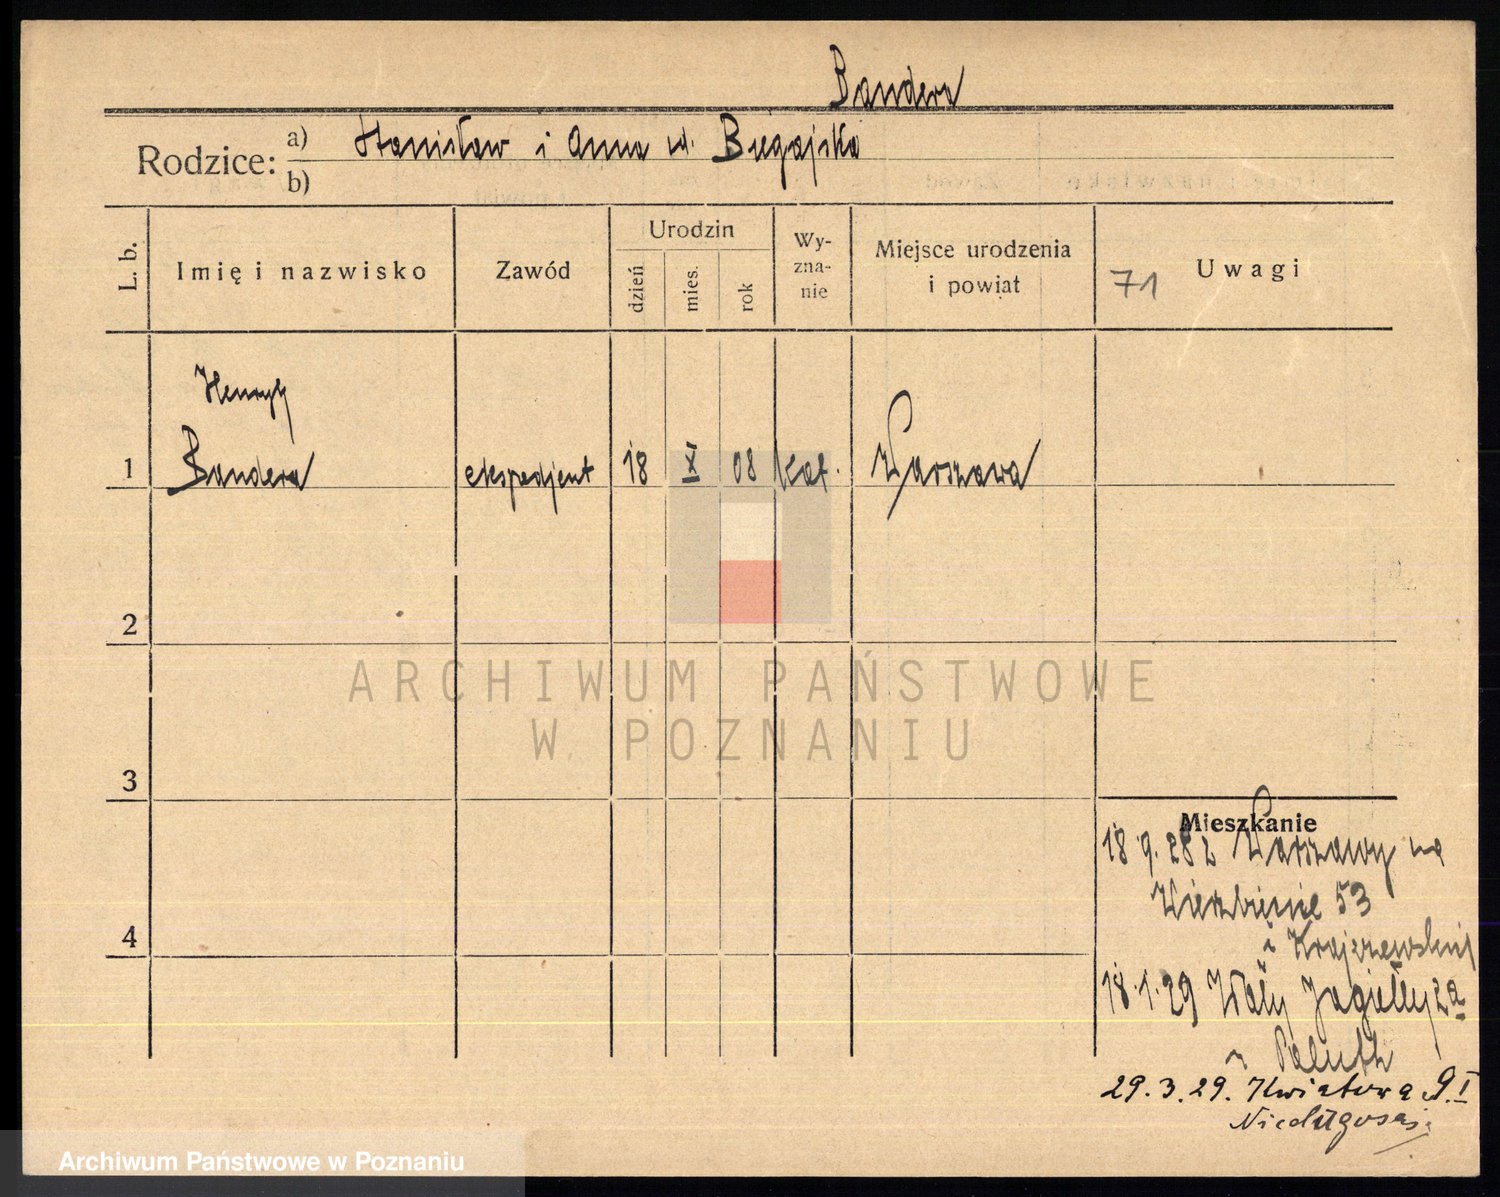 Bandera
Rodzice: a) Stanisław i Anna
b)
L. b. Imię i nazwisko Zawód Urodzin dzień mies. rok Wy-zna-nie Miejsce urodzenia i powiat 71 Uwagi
Henryk
1 Bandera ekspedjent 18 X 08 kat. Warszawa
2
3
Mieszkanie
18.9.28 z Warszawy na
Wierzbięcie 53
4
18.1.29 Wały Jagiełły 2a
29.3.29. Kwiatowa 9.I
ARCHIWUM PAŃSTWOWE
W POZNANIU
Archiwum Państwowe w Poznaniu